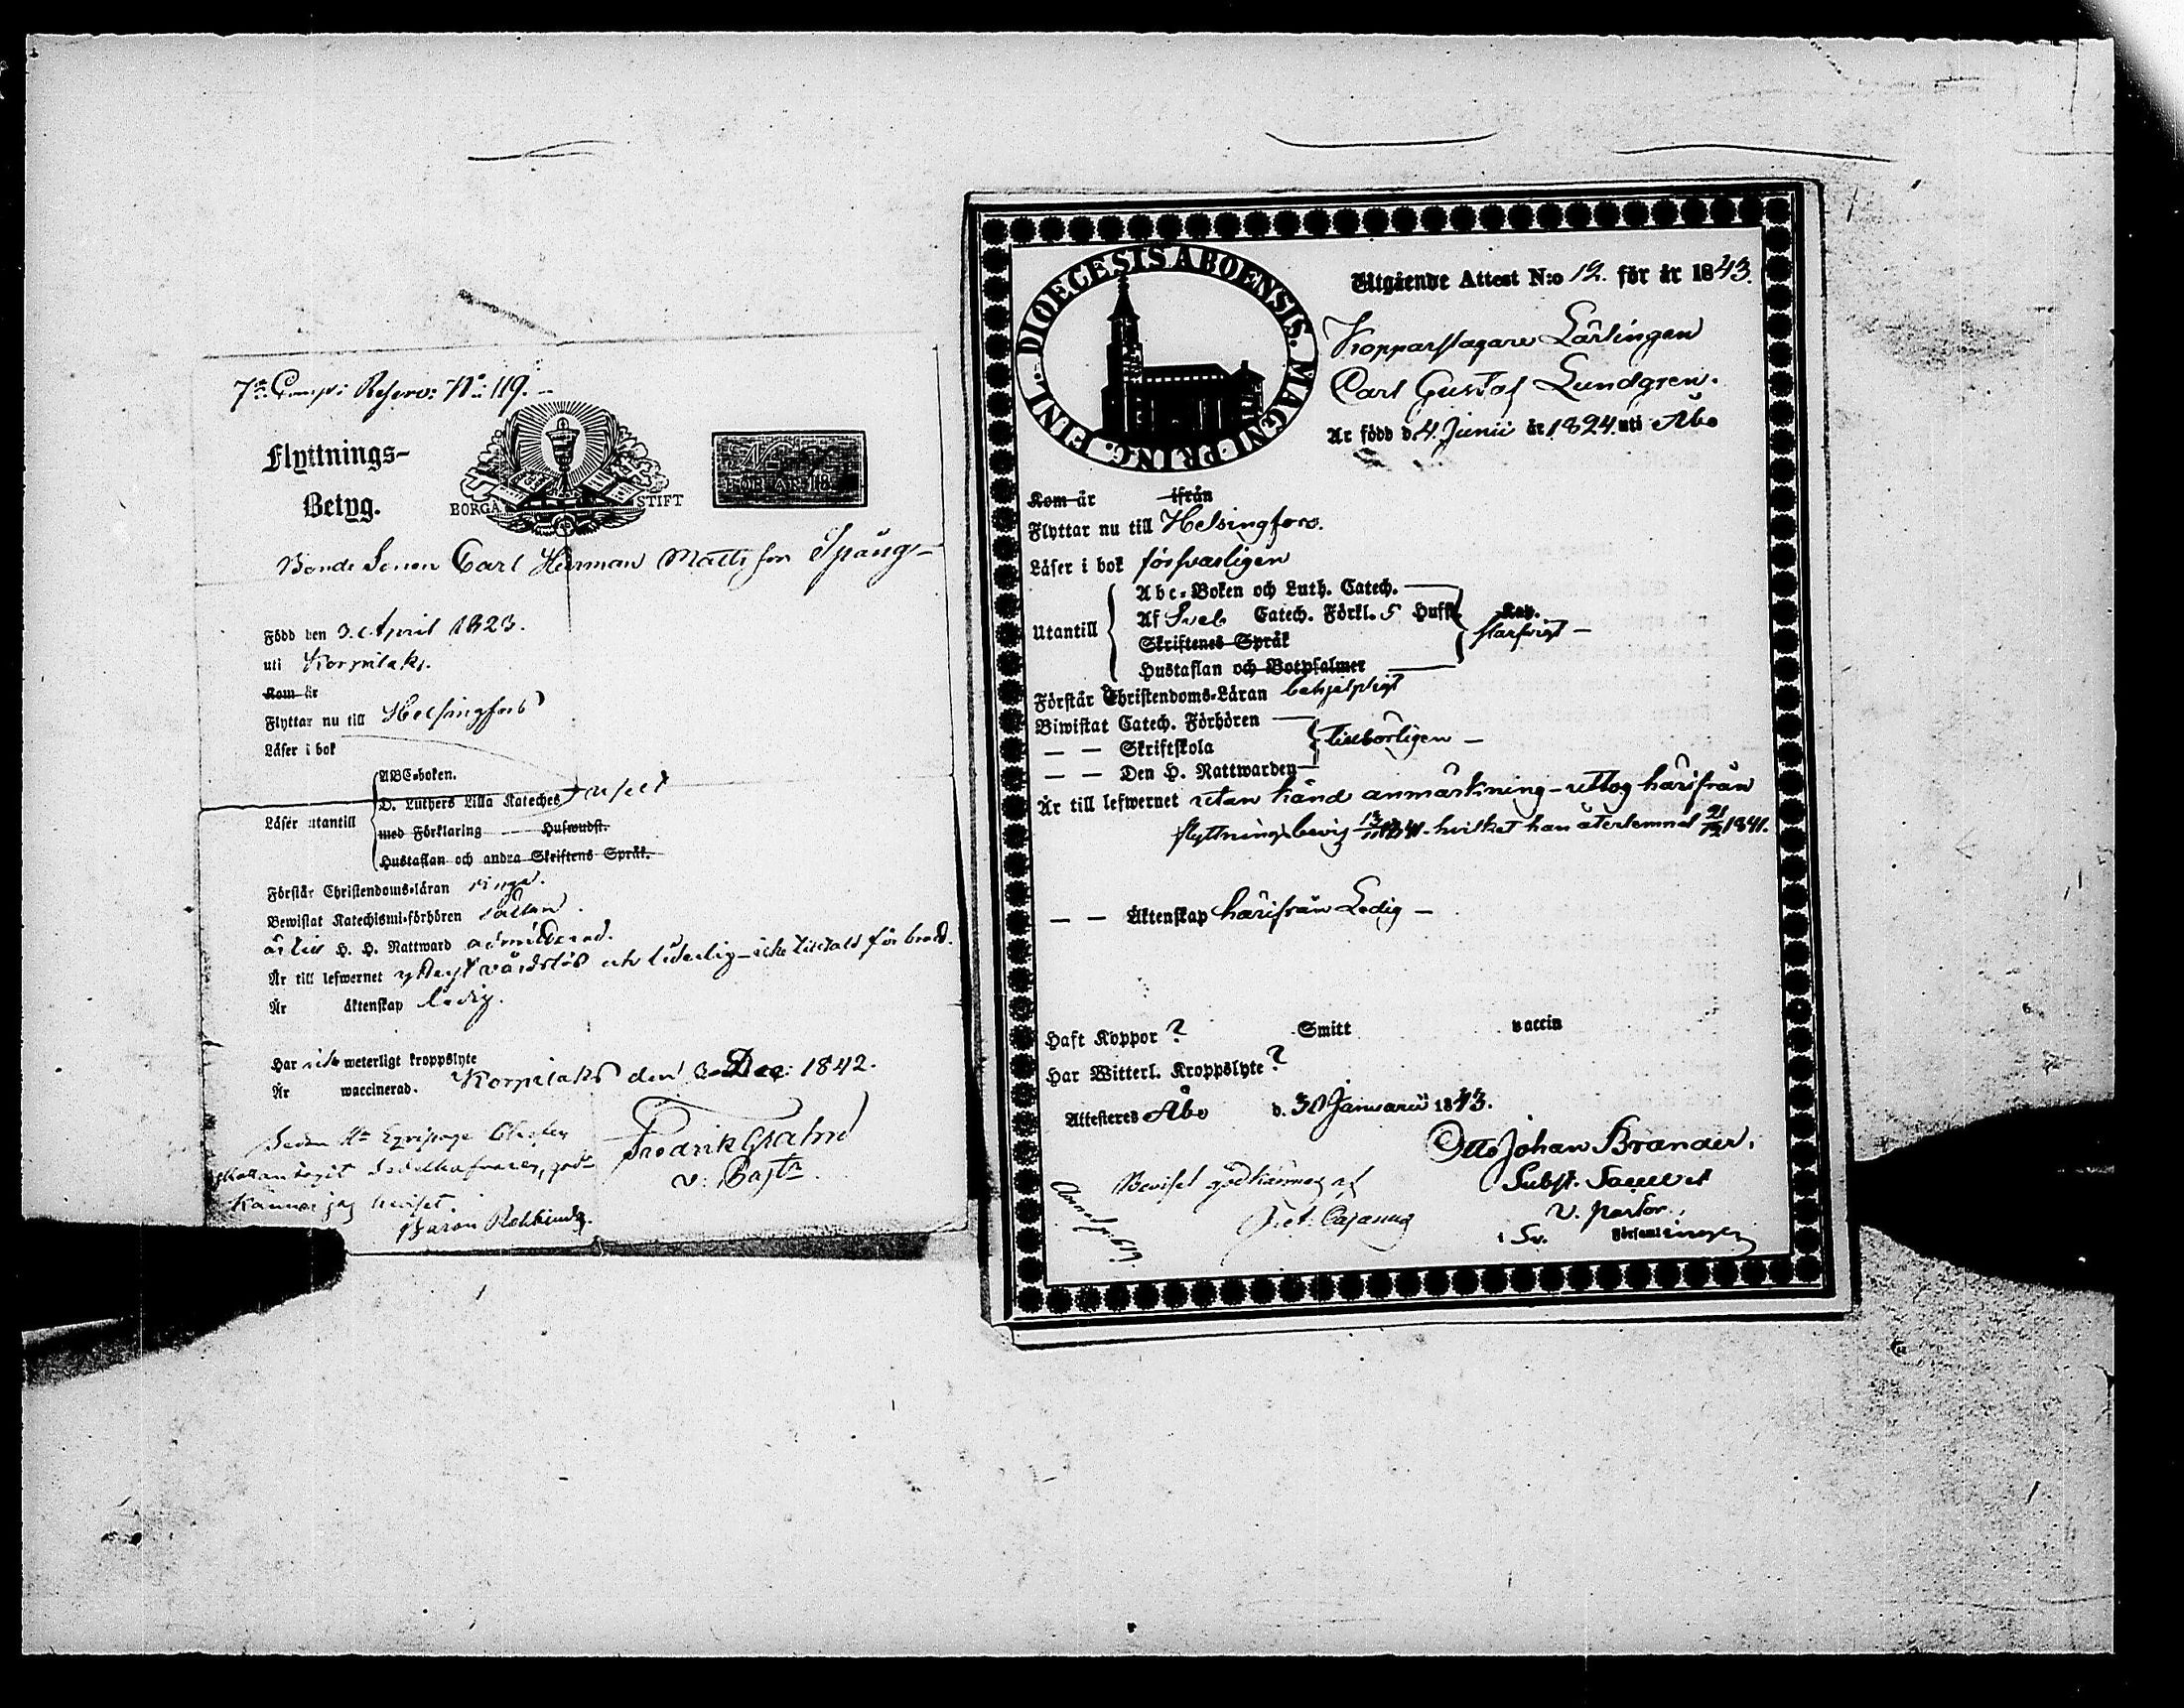 7:de Comp: Reserv: No: 119.
Flyttnings-
Betyg.
BORGÅ STIFT
FÖR ÅR 18
Bonde Sonen Carl Herman Mattsson Spång
Född den 3. April 1823.
uti Korpilaks.
Kom år
Flyttar nu till Helsingfors
Läser i bok
Läser utantill
ABC-boken.
D. Luthers Lilla Kateches
med Förklaring Hufwudst.
Hustaflan och andra Skriftens Språk.
Förstår Christendoms-läran ringa.
Bewistat Katechismi-förhören sällan.
är till H. H. Nattward admitterad.
Är till lefwernet ytterst vårdslös och liderlig - icke tilltald för brott.
Är äktenskap ledig.
Har icke weterligt kroppslyte
Är waccinerad.
Korpilaks den 3 Dec: 1842.
Fredrik Grahn
v: Past:r
känner jag beviset.
Baron Rehbinder.
DIOECESIS ABOENSIS. MAGNI PRINC. FINL.
Utgående Attest N:o 12. för år 1843.
Kopparslagare Lärlingen
Carl Gustaf Lundgren.
Är född d. 4. Junii år 1824. uti Åbo
Kom år ifrån
Flyttar nu till Helsingfors.
Läser i bok försvarligen
Utantill
Abc-Boken och Luth. Catech.
Af Sveb. Catech. Förkl. 5 Hufst. Kap.
Skriftenes Språk
Hustaflan och Botpsalmer
Förstår Christendoms-Läran behjelpligt
Biwistat Catech. Förhören
— — Skriftskola tillbörligen —
— — Den H. Nattwarden
Är till lefwernet utan känd anmärkning - uttog härifrån
flyttningsbevis 13/11 1841. hvilket han återlemnat 21/12 1841.
— — Äktenskap härifrån Ledig —
Haft Koppor ? Smitt vaccin
Har Witterl. Kroppslyte ?
Attesteras Åbo d. 30 Januarii 1843.
Otto Johan Brander.
Subst.
v. Pastor.
i Sv. Församlingen
Beviset godkännes af
Cajanus